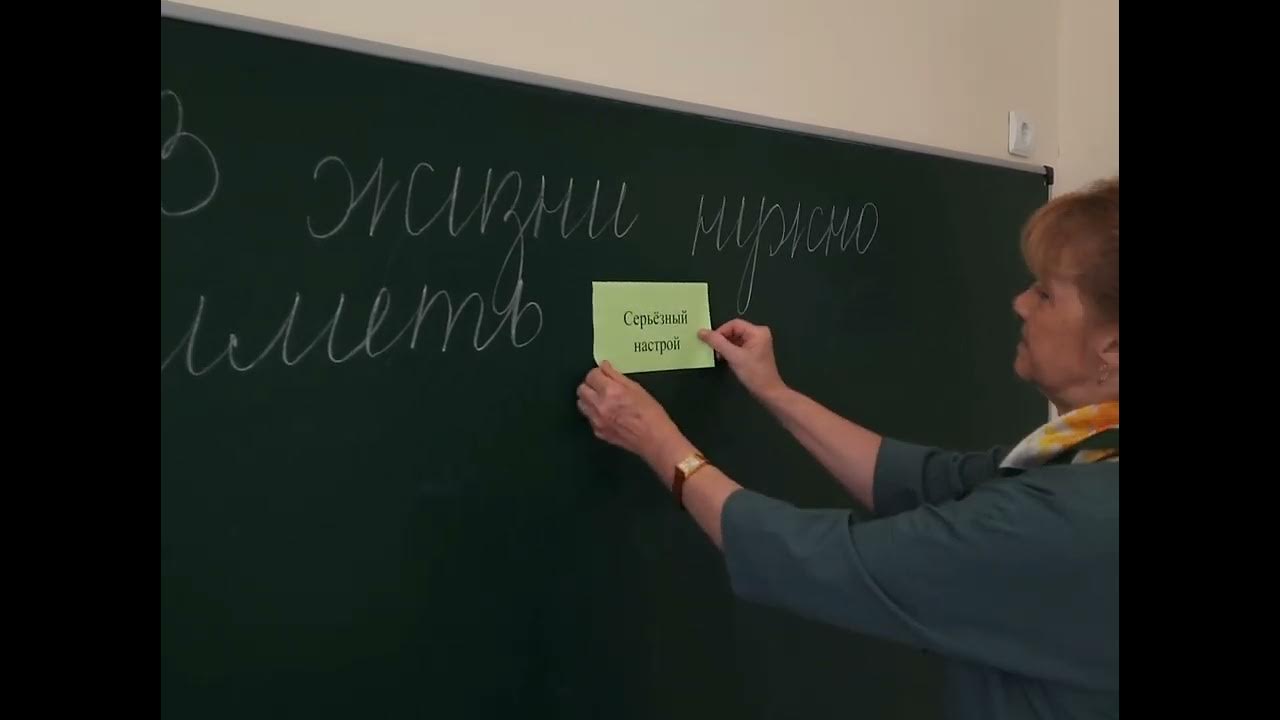 В жизни нужно
иметь
Серьёзный
настрой